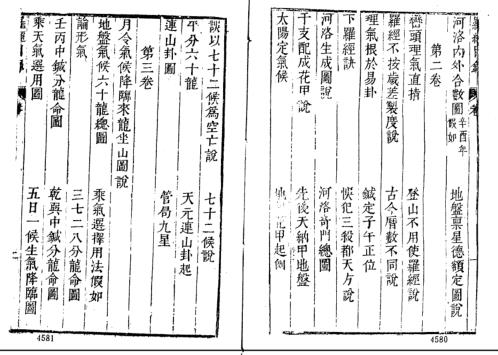 河洛內外合數圖 辛酉年假如 地盤稟星德領定圖說
第二卷
巒頭理氣直指 登山不用使羅經說
羅經不按歲差製度說 古今曆數不同說
理氣根於易卦 鍼定子午正位
下羅經訣 犯三殺都天方說
河洛生成圖說 河洛奇門總圖
干支配成花甲說 先後天納甲地盤
太陽定氣候 甲起例
4580
談以七十二候為空亡說 七十二候說
平分六十龍 天元連山卦起
連山卦圖 管局九星
第三卷
月令氣候降臨來龍坐山圖說
地盤氣候六十龍總圖 乘氣選擇用法假如
論形氣 三七二八分龍命圖
壬丙中鍼分龍命圖 乾巽中鍼分龍命圖
乘天氣選用圖 五日一候生氣降臨圖
4581